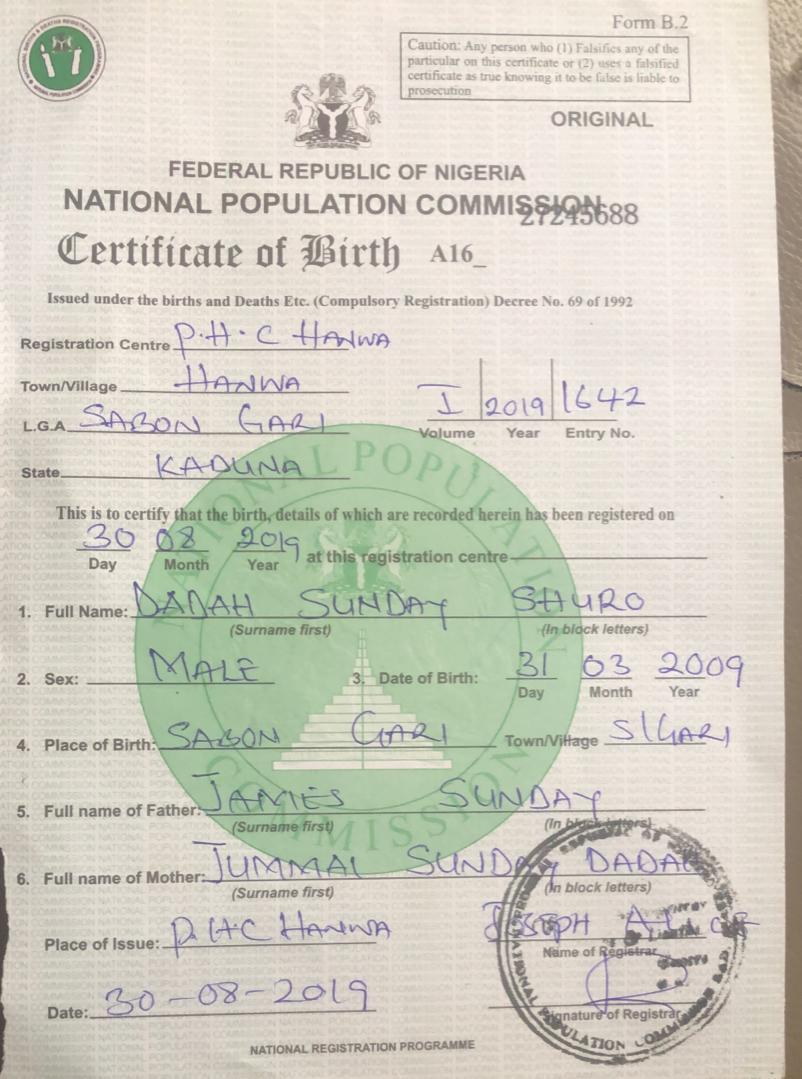 Form B.2
Caution: Any person who (1) Falsifies any of the
particular on this certificate or (2) uses a falsified
certificate as true knowing it to be false is liable to
prosecution
ORIGINAL
FEDERAL REPUBLIC OF NIGERIA
NATIONAL POPULATION COMMISSION
27245688
Certificate of Birth A16_
Issued under the births and Deaths Etc. (Compulsory Registration) Decree No. 69 of 1992
Registration Centre P.H.C HANWA
Town/Village HANWA
I 2019 1642
L.G.A SABON GARI
Volume Year Entry No.
State KADUNA
This is to certify that the birth, details of which are recorded herein has been registered on
30 08 2019 at this registration centre
Day Month Year
1. Full Name: DADAH SUNDAY SHURO
(Surname first) (In block letters)
2. Sex: MALE 3. Date of Birth: 31 03 2009
Day Month Year
4. Place of Birth: SABON GARI Town/Village S/GARI
5. Full name of Father: JAMES SUNDAY
(Surname first) (In block letters)
6. Full name of Mother: JUMMAI SUNDAY DADAH
(Surname first) (In block letters)
Place of Issue: P.H.C HANWA JOSEPH
Name of Registrar
Date: 30-08-2019
Signature of Registrar
NATIONAL REGISTRATION PROGRAMME
NATIONAL POPULATION COMMISSION